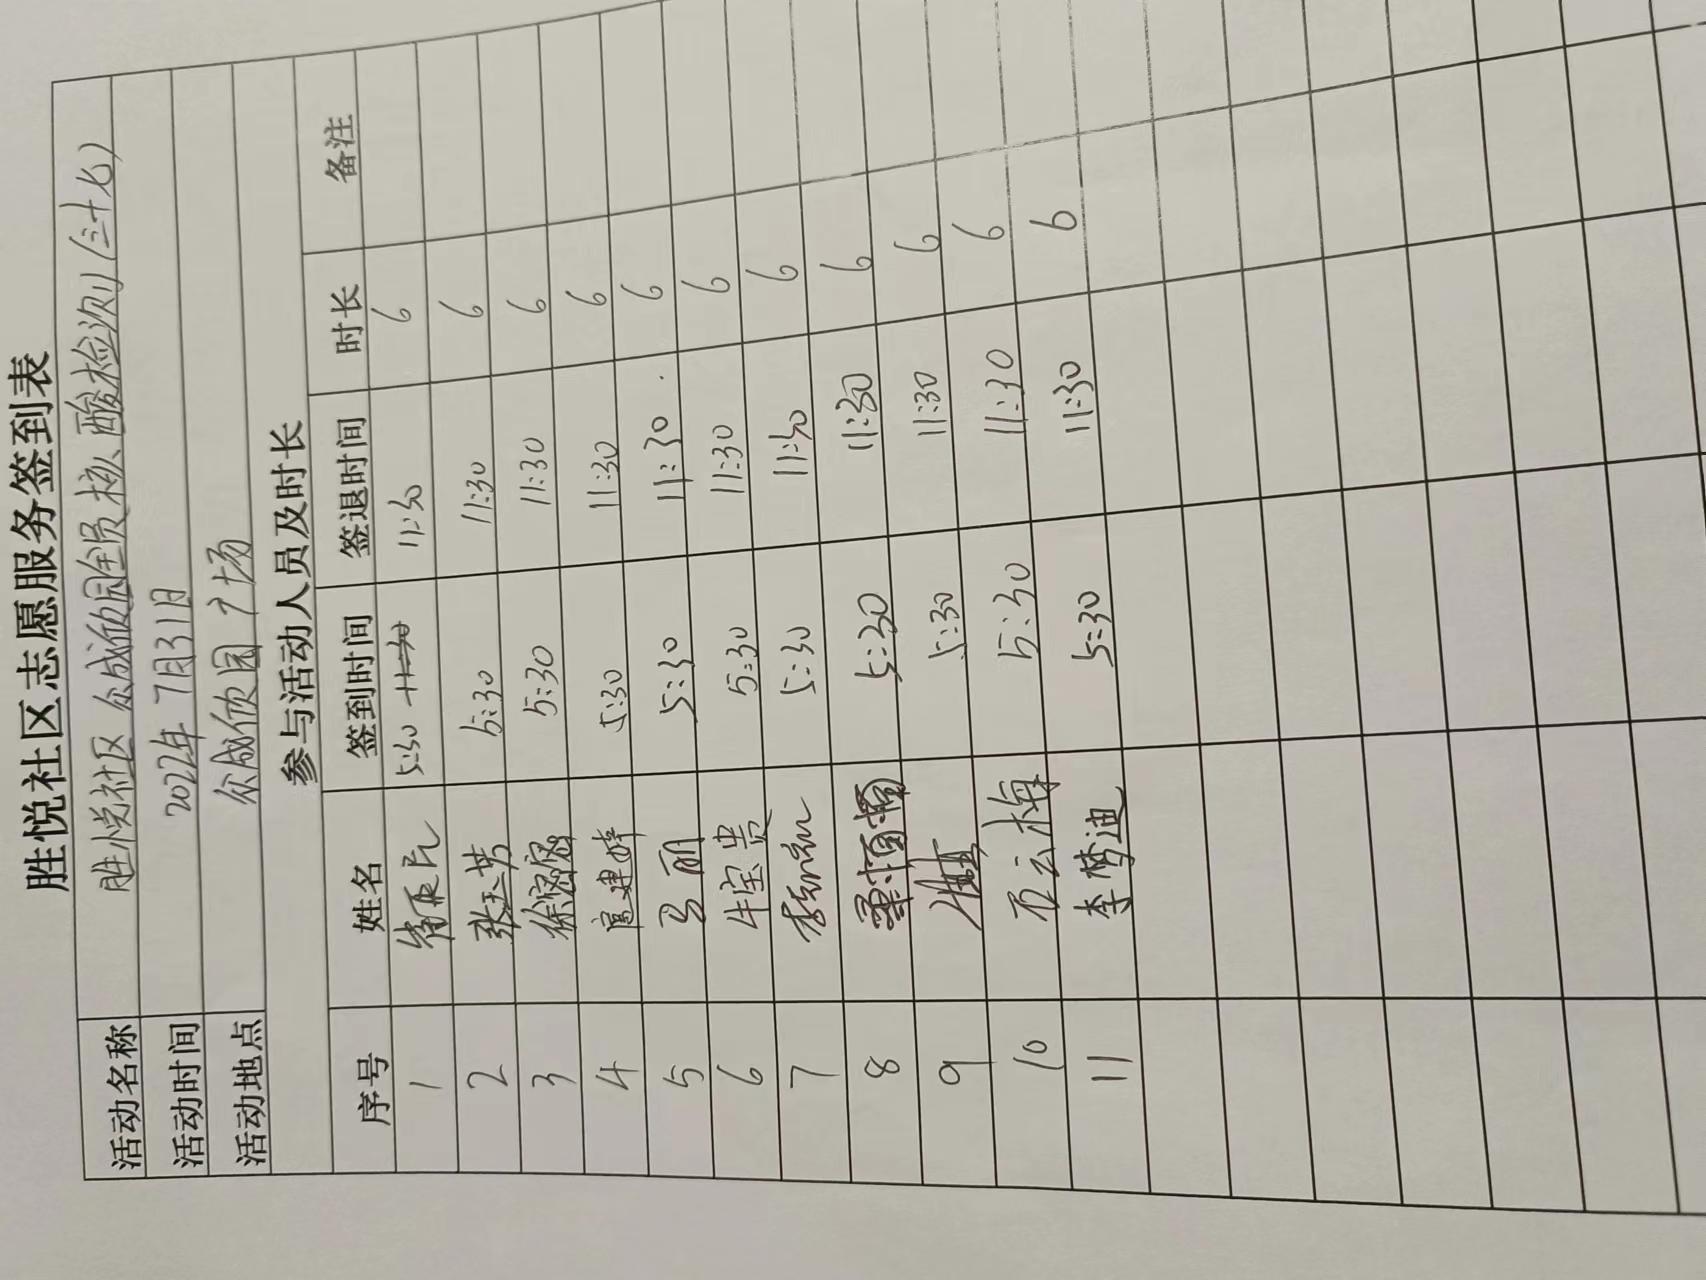 胜悦社区志愿服务签到表
活动名称 胜悦社区众成欣园全员核酸检测(三十七)
活动时间 2022年7月31日
活动地点 众成欣园广场
参与活动人员及时长
序号 姓名 签到时间 签退时间 时长 备注
1 5:30 11:30 11:30 6
2 5:30 11:30 6
3 徐密密 5:30 11:30 6
4 5:30 11:30 6
5 马丽 5:30 11:30 6
6 牛宝贵 5:30 11:30 6
7 5:30 11:30 6
8 5:30 11:30 6
9 5:30 11:30 6
10 石云梅 5:30 11:30 6
11 李梦迪 5:30 11:30 6